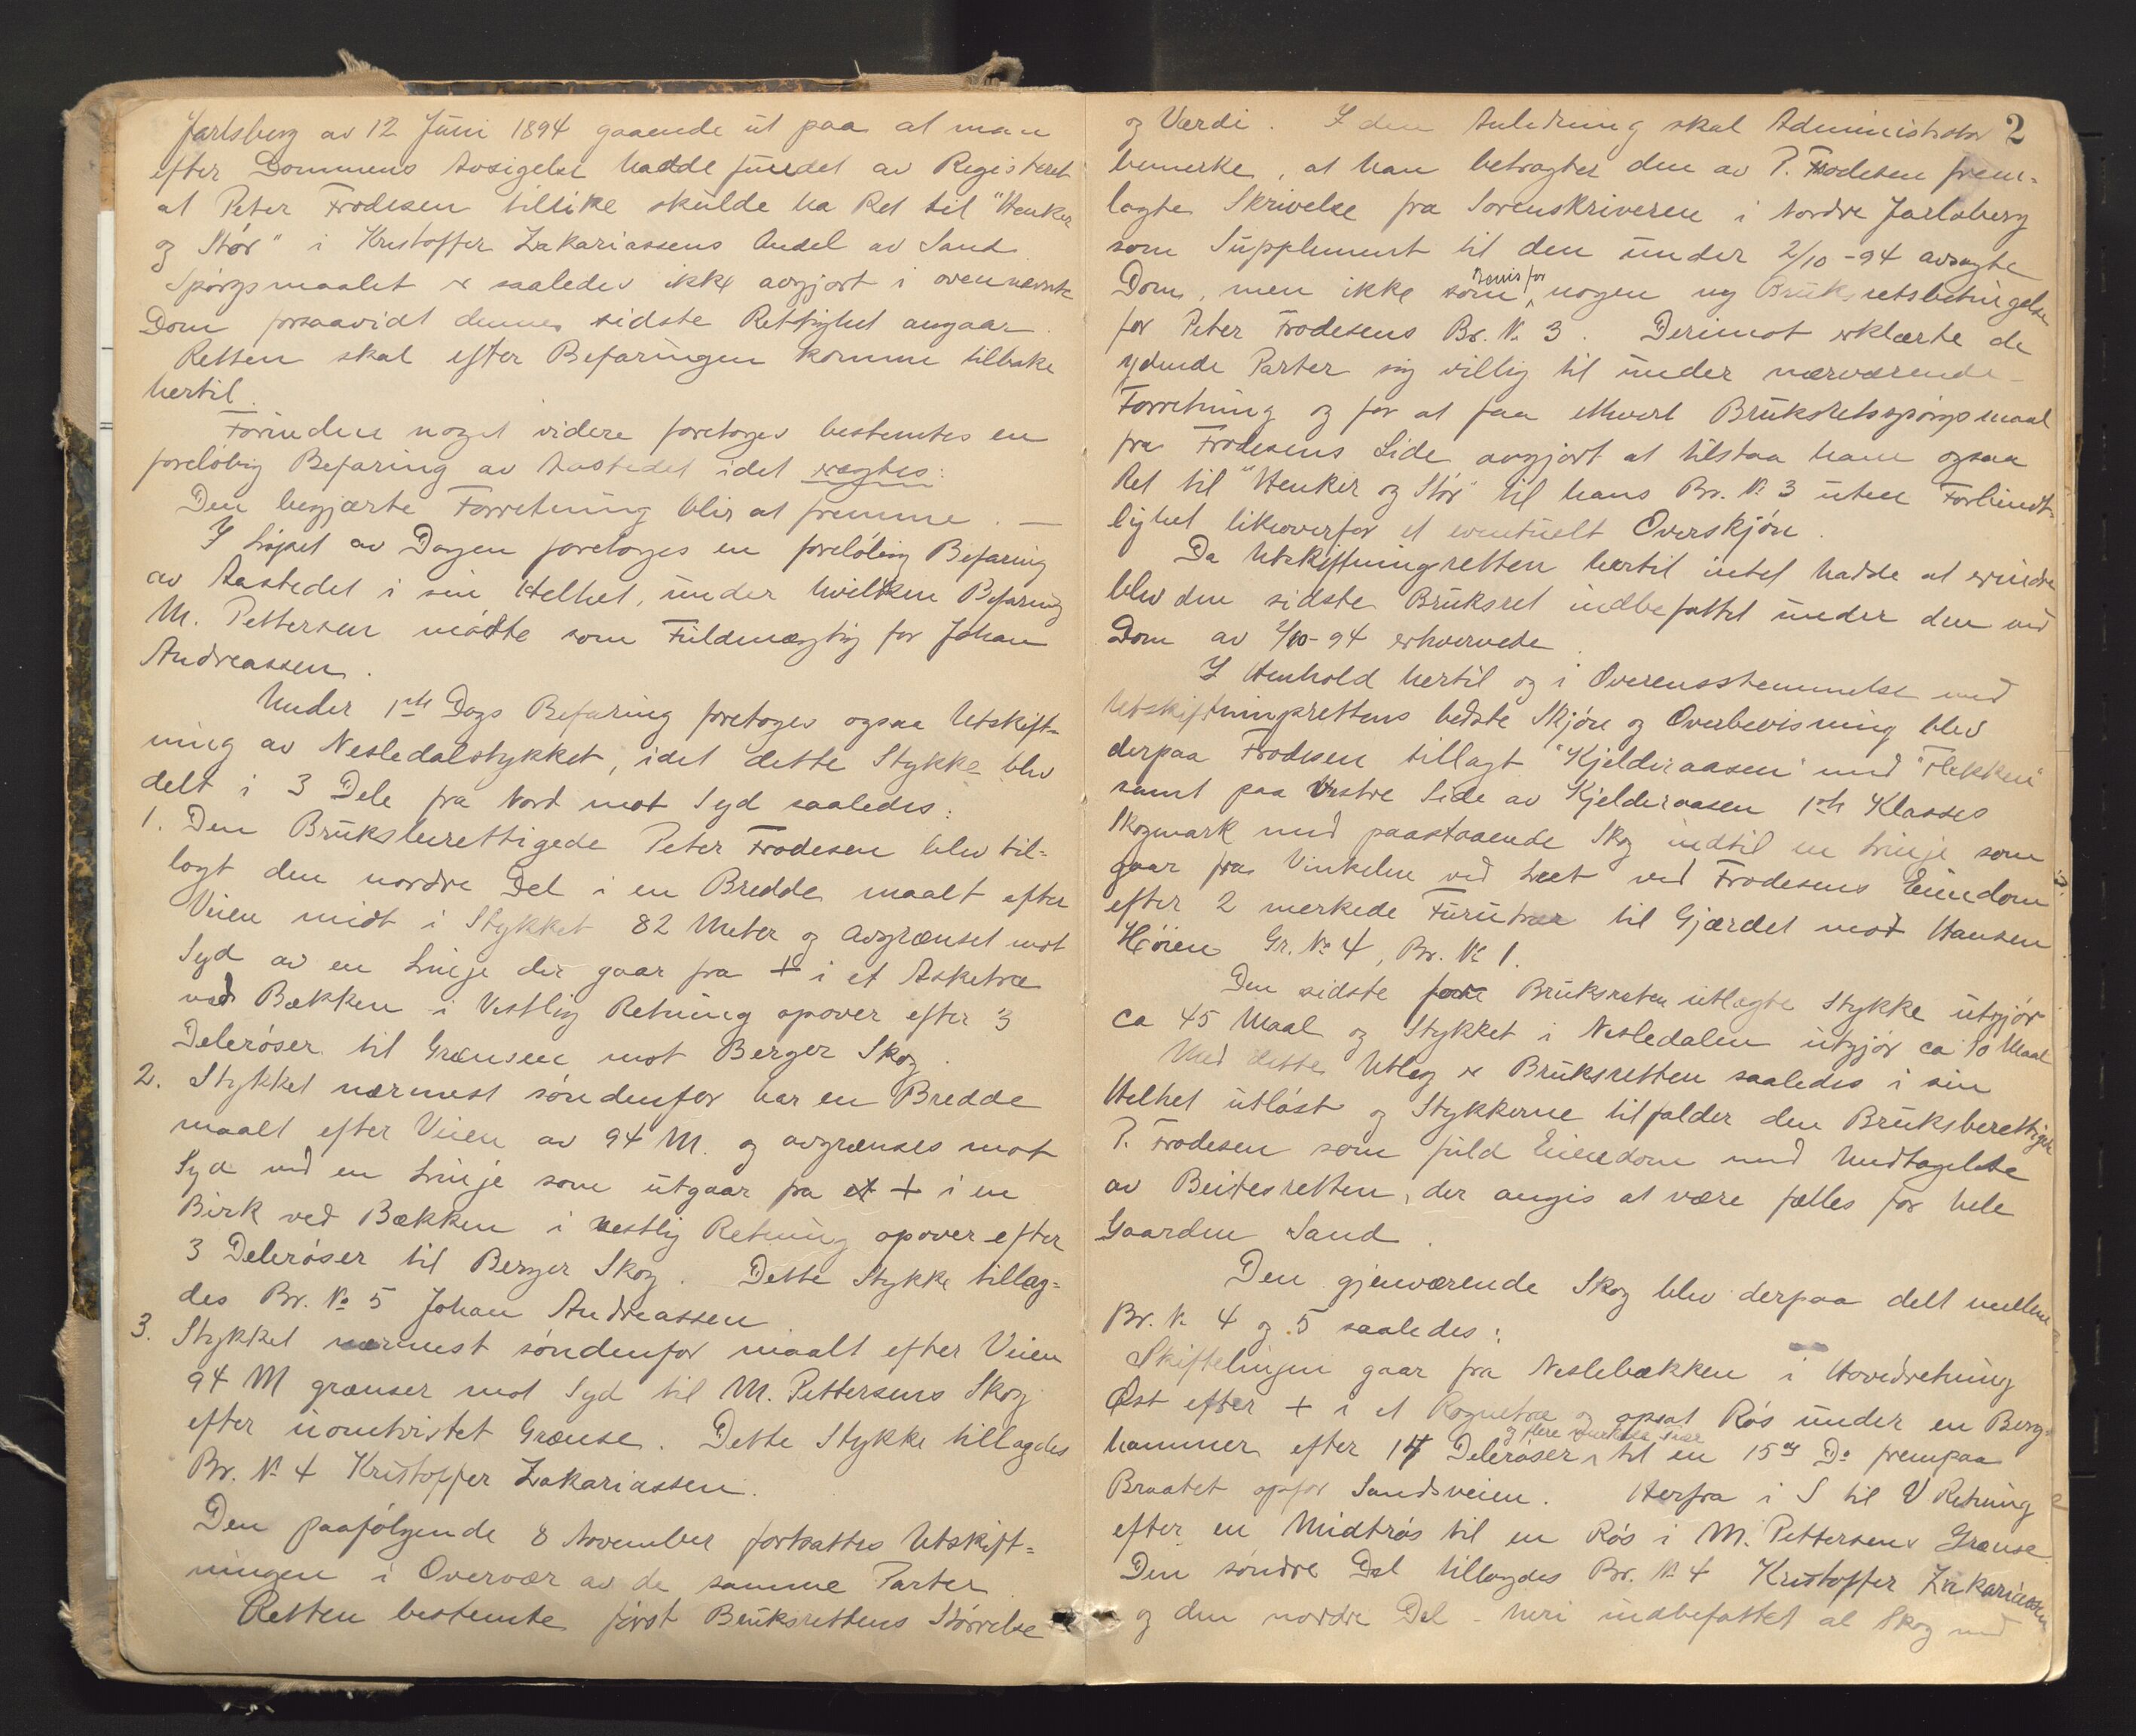 Jarlsberg av 12 Juni 1894 gaaende ut paa at man
efter Dommens Avsigelse hadde fundet av Registeret
at Peter Frodesen tillike skulde ha Ret til "Henker
og Stör" i Kristoffer Zakariassens Andel av Sand
Spörgsmaalet er saaledes ikke avgjort i ovennævnte
Dom forsaavidt denne sidste Rettighet angaar.
Retten skal efter Befaringen komme tilbake
hertil.
Forinden noget videre foretoges bestemtes en
forelöbig Befaring av Aastedet idet eragtes:
Den begjærte Forretning blir at fremme. —
I Löpet av Dagen foretoges en forelöbig Befaring
av Aastedet i sin Helhet, under hvilken Befaring
M. Pettersen mödte som Fuldmægtig for Johan
Andreassen.
Under 1ste Dags Befaring foretoges ogsaa Utskift=
ning av Nesledalstykket, idet dette Stykke blev
delt i 3 Dele fra Nord mot Syd saaledes:
1. Den Bruksberettigede Peter Frodesen blev til=
lagt den nordre Del i en Bredde maalt efter
Veien midt i Stykket 82 Meter og avgrænset mot
Syd av en Linje der gaar fra + i et Asketræ
ved Bækken i Vestlig Retning opover efter 3
Deleröser til Grænsen mot Berger Skog.
2. Stykket nærmest söndenfor har en Bredde
maalt efter Veien av 94 M. og avgrænses mot
Syd ved en Linje som utgaar fra et + i en
Birk ved Bækken i vestlig Retning opover efter
3 Deleröser til Berger Skog. Dette Stykke tillag=
des Br. No 5 Johan Andreassen.
3. Stykket nærmest söndenfor maalt efter Veien
94 M grænser mot Syd til M. Pettersens Skog
efter uomtvistet Grænse. Dette Stykke tillagdes
Br. No 4 Kristoffer Zakariassen.
Den paafölgende 8 November fortsattes Utskift=
ningen i Overvær av de samme Parter.
Retten bestemte först Bruksrettens Störrelse
2
og Værdi. I den Anledning skal Administrator
bemerke, at han betragter den av P. Frodesen frem=
lagte Skrivelse fra Sorenskriveren i Nordre Jarlsberg
som Supplement til den under 2/10-94 avsagte
Dom, men ikke som Bevis for nogen ny Bruksretsbetingelse
for Peter Frodesens Br. No 3. Derimot erklærte de
ydende Parter sig villig til under nærværende
Forretning og for at faa ethvert Bruksretsspörgsmaal
fra Frodesens Side avgjort at tilstaa ham ogsaa
Ret til "Henker og Stör" til hans Br. No 3 uten Forbindt-
lighet likeoverfor et eventuelt Overskjön.
Da Utskiftningsretten hertil intet hadde at erindre
blev den sidste Bruksret indbefattet under den ved
Dom av 2/10-94 erhvervede.
I Henhold hertil og i Overensstemmelse med
Utskiftningsrettens bedste Skjön og Overbevisning blev
derpaa Frodesen tillagt "Kjelderaasen" med "Flekken"
samt paa Vestre Side av Kjelderaasen 1ste Klasses
Skogmark med paastaaende Skog indtil en Linje som
gaar fra Vinkelen ved Leet ved Frodesens Eiendom
efter 2 merkede Furutrær til Gjærdet mot Hansen
Höien Gr. No 4, Br. No 1.
Den sidste Bruksreten utlagte Stykke utgjör
ca 45 Maal og Stykket i Nesledalen utgjör ca 10 Maal
Med dette Utlæg er Bruksretten saaledes i sin
Helhet utlöst og Stykkerne tilfalder den Bruksberettigede
P. Frodesen som fuld Eiendom med Undtagelse
av Beitesretten, der angis at være fælles for hele
Gaarden Sand.
Den gjenværende Skog blev derpaa delt mellem
Br. No 4 og 5 saaledes:
Skiftelinjen gaar fra Neslebækken i Hovedretning
Öst efter + i et Rognetræ og opsat Rös under en Berg=
hammer efter 14 Deleröser og flere merkede Trær til en 15de Do frempaa
Braatet opfor Sandsveien. Herfra i S til V Retning
efter en Midtrös til en Rös i M. Pettersens Grænse.
Den söndre Del tillagdes Br. No 4 Kristoffer Zakariassen
og den nordre Del - heri indbefattet al Skog ved